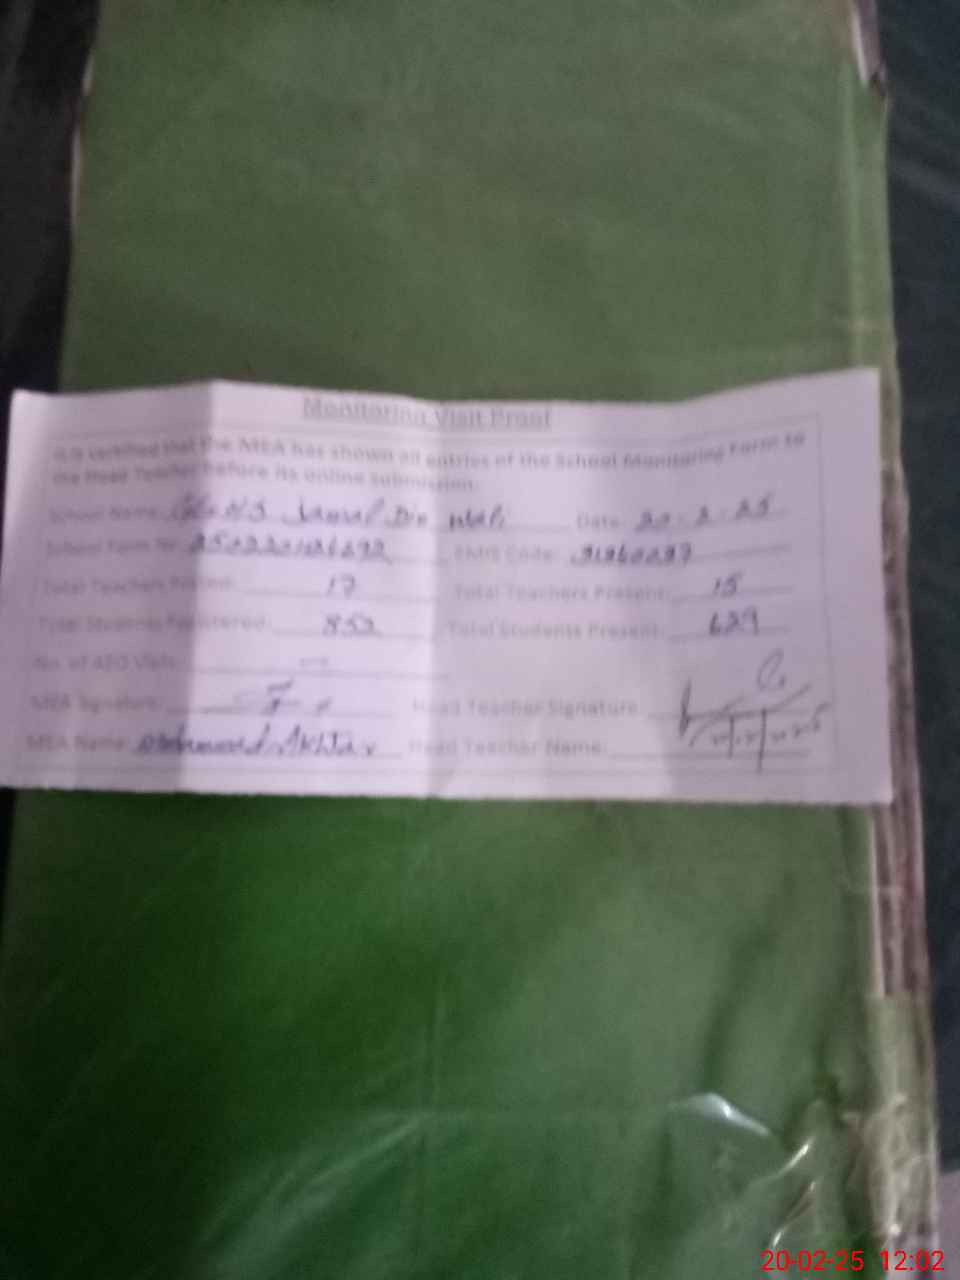 Monitoring Visit Proof
It is certified that the MEA has shown all entries of the School Monitoring Form to
the Head Teacher before its online submission.
School Name: Jamal Din Wali Date: 20-2-25
School Form No: EMIS Code:
Total Teachers Posted: 17 Total Teachers Present: 15
Total Students Registered: 852 Total Students Present: 639
No. of AEO Visits: —
MEA Signature: Head Teacher Signature:
MEA Name: Akhtar Head Teacher Name:
20-02-25 12:02